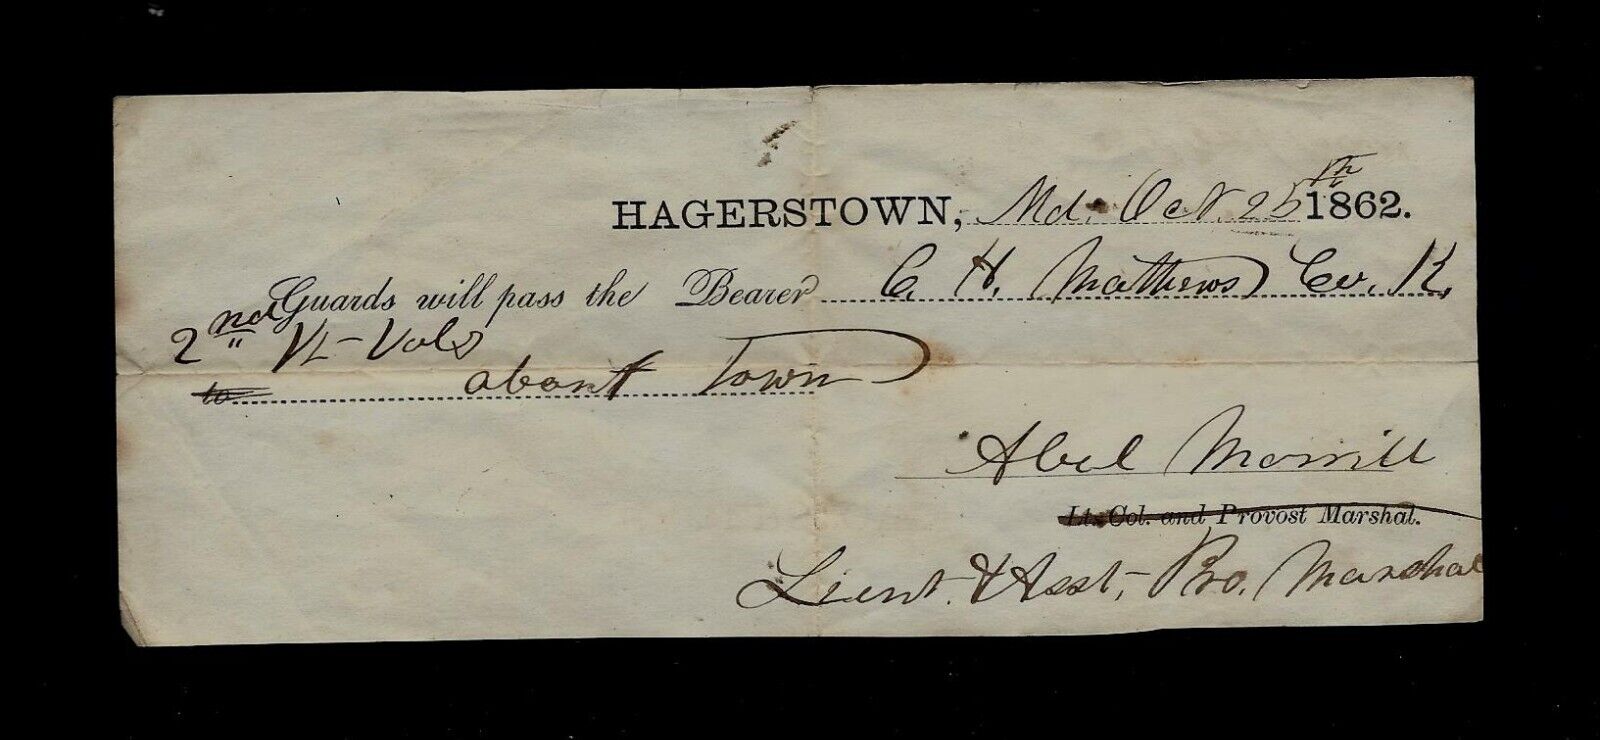 HAGERSTOWN, Md. Oct. 25th 1862.
Guards will pass the Bearer C. H. Mathews Co. K,
2nd Vt Vols
to about Town
Abel Morrill
Lt. Col. and Provost Marshal.
Lieut. & Asst, Pro. Marshal